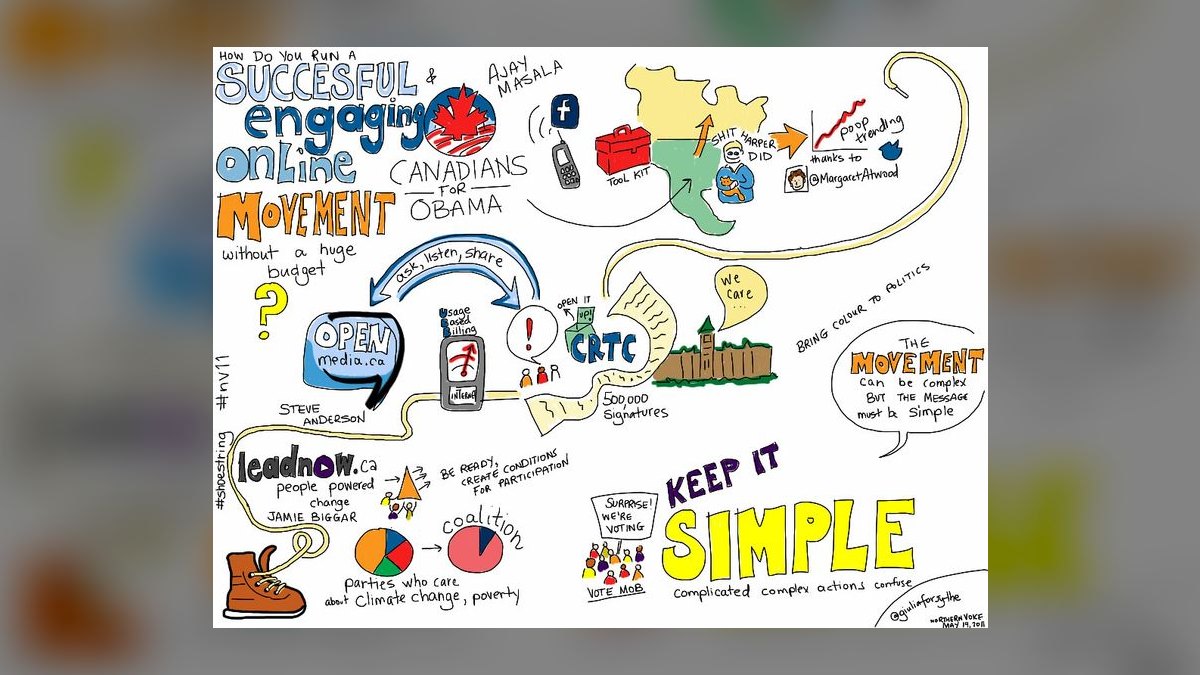 HOW DO YOU RUN A
SUCCESFUL &
engaging
online
MOVEMENT
without a huge
budget
?
CANADIANS
FOR
OBAMA
AJAY
MASALA
f
TOOL KIT
SHIT HARPER
DID
poop
trending
thanks to
@MargaretAtwood
ask, listen, share
OPEN
media.ca
STEVE
ANDERSON
Usage
Based
Billing
INTERNET
!
OPEN IT
UP!
CRTC
500,000
Signatures
We
care
...
BRING COLOUR TO POLITICS
THE
MOVEMENT
can be complex
BUT THE MESSAGE
must be simple
#nv11
#shoestring
leadnow.ca
people powered
change
JAMIE BIGGAR
BE READY,
CREATE CONDITIONS
FOR PARTICIPATION
coalition
parties who care
about climate change, poverty
SURPRISE!
WE'RE
VOTING
VOTE MOB
KEEP IT
SIMPLE
complicated complex actions confuse
@giuliaforsythe
NORTHERN VOICE
MAY 14, 2011